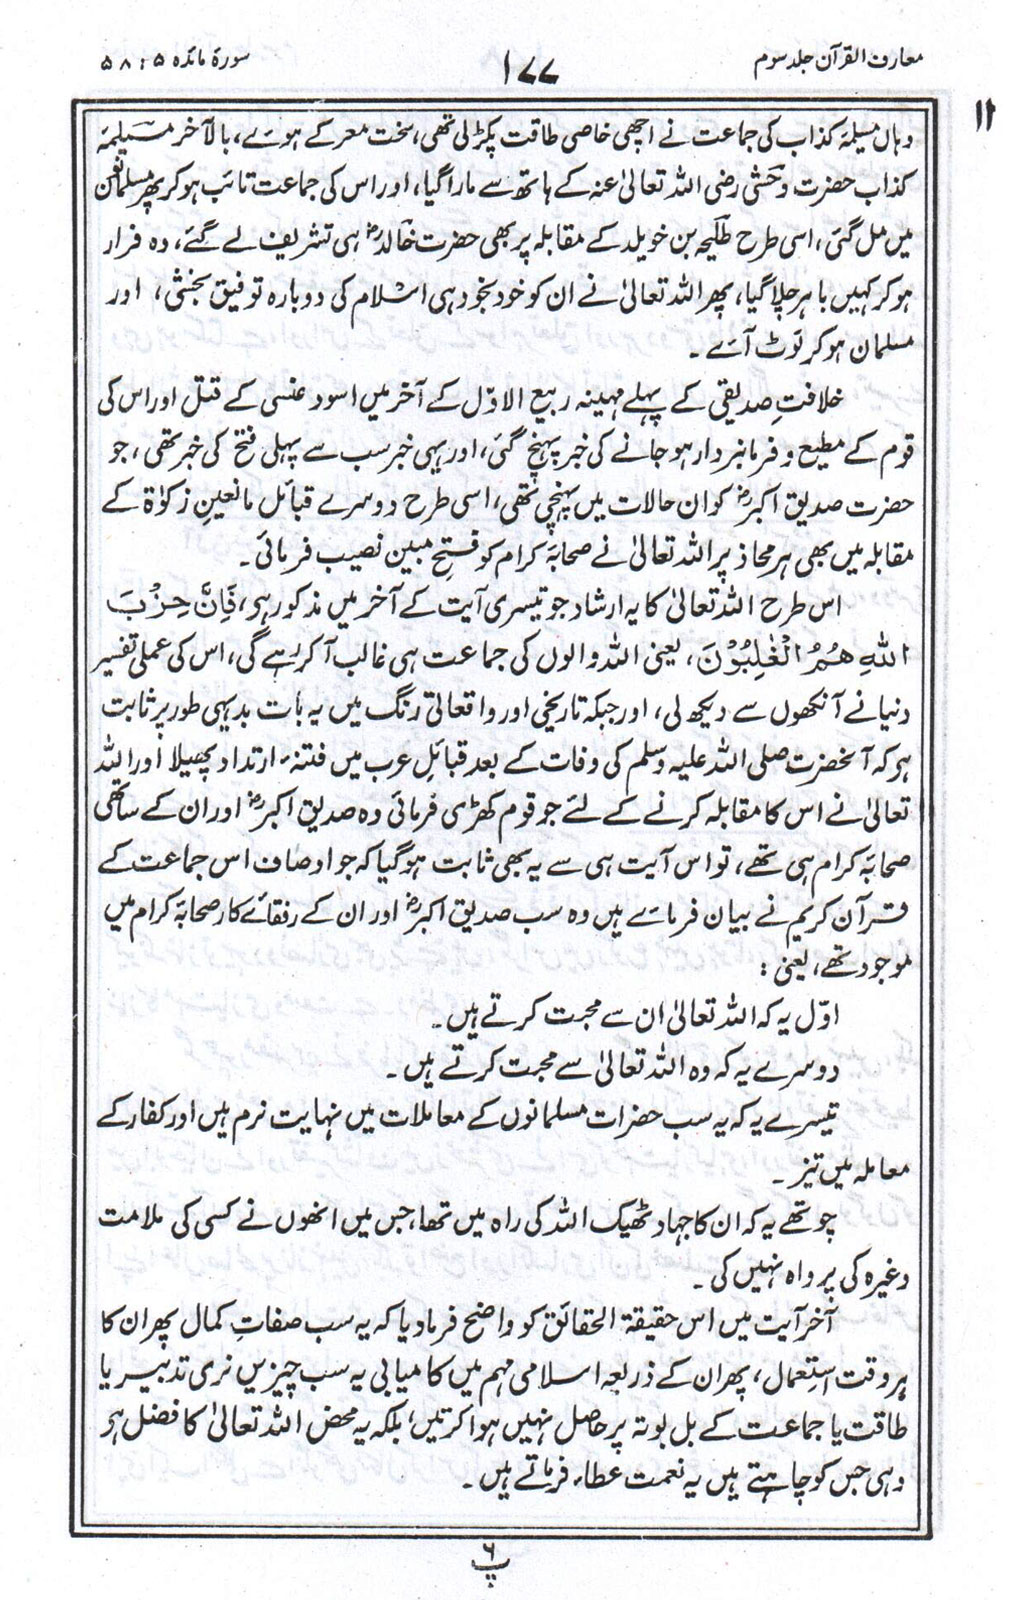 معارف القرآن جلد سوم
۱۷۷
سورۂ مائدہ ۵ : ۵۸
۱۲
وہاں مسیلمہ کذاب کی جماعت نے اچھی خاصی طاقت پکڑ لی تھی، سخت معرکے ہوئے، بالآخر مسیلمہ
کذاب حضرت وحشی رضی اللہ تعالیٰ عنہ کے ہاتھ سے مارا گیا، اور اس کی جماعت تائب ہو کر پھر مسلمانوں
میں مل گئی، اسی طرح طلیحہ بن خویلد کے مقابلہ پر بھی حضرت خالدؓ ہی تشریف لے گئے، وہ فرار
ہو کر کہیں باہر چلا گیا، پھر اللہ تعالیٰ نے ان کو خود بخود ہی اسلام کی دوبارہ توفیق بخشی، اور
مسلمان ہو کر لوٹ آئے۔
خلافتِ صدیقی کے پہلے مہینہ ربیع الاوّل کے آخر میں اسود عنسی کے قتل اور اس کی
قوم کے مطیع و فرمانبردار ہو جانے کی خبر پہنچ گئی، اور یہی خبر سب سے پہلی فتح کی خبر تھی، جو
حضرت صدیق اکبرؓ کو ان حالات میں پہنچی تھی، اسی طرح دوسرے قبائل مانعینِ زکوٰۃ کے
مقابلہ میں بھی ہر محاذ پر اللہ تعالیٰ نے صحابۂ کرام کو فتحِ مبین نصیب فرمائی۔
اس طرح اللہ تعالیٰ کا یہ ارشاد جو تیسری آیت کے آخر میں مذکور ہے، فَاِنَّ حِزْبَ
اللّٰہِ ھُمُ الْغٰلِبُوْنَ، یعنی اللہ والوں کی جماعت ہی غالب آ کر رہے گی، اس کی عملی تفسیر
دنیا نے آنکھوں سے دیکھ لی، اور جبکہ تاریخی اور واقعاتی رنگ میں یہ بات بدیہی طور پر ثابت
ہے کہ آنحضرت صلی اللہ علیہ وسلم کی وفات کے بعد قبائلِ عرب میں فتنۂ ارتداد پھیلا اور اللہ
تعالیٰ نے اس کا مقابلہ کرنے کے لئے جو قوم کھڑی فرمائی وہ صدیق اکبرؓ اور ان کے ساتھی
صحابۂ کرام ہی تھے، تو اس آیت ہی سے یہ بھی ثابت ہو گیا کہ جو اوصاف اس جماعت کے
قرآن کریم نے بیان فرمائے ہیں وہ سب صدیق اکبرؓ اور ان کے رفقائے کار صحابۂ کرام میں
موجود تھے، یعنی :
اوّل یہ کہ اللہ تعالیٰ ان سے محبت کرتے ہیں۔
دوسرے یہ کہ وہ اللہ تعالیٰ سے محبت کرتے ہیں۔
تیسرے یہ کہ یہ سب حضرات مسلمانوں کے معاملات میں نہایت نرم ہیں اور کفار کے
معاملہ میں تیز۔
چوتھے یہ کہ ان کا جہاد ٹھیک اللہ کی راہ میں تھا، جس میں انھوں نے کسی کی ملامت
وغیرہ کی پرواہ نہیں کی۔
آخر آیت میں اس حقیقۃ الحقائق کو واضح فرما دیا کہ یہ سب صفاتِ کمال پھر ان کا
بروقت استعمال، پھر ان کے ذریعہ اسلامی مہم میں کامیابی یہ سب چیزیں نری تدبیر یا
طاقت یا جماعت کے بل بوتہ پر حاصل نہیں ہوا کرتیں، بلکہ یہ محض اللہ تعالیٰ کا فضل ہے
وہی جس کو چاہتے ہیں یہ نعمت عطاء فرماتے ہیں۔
پ ۶